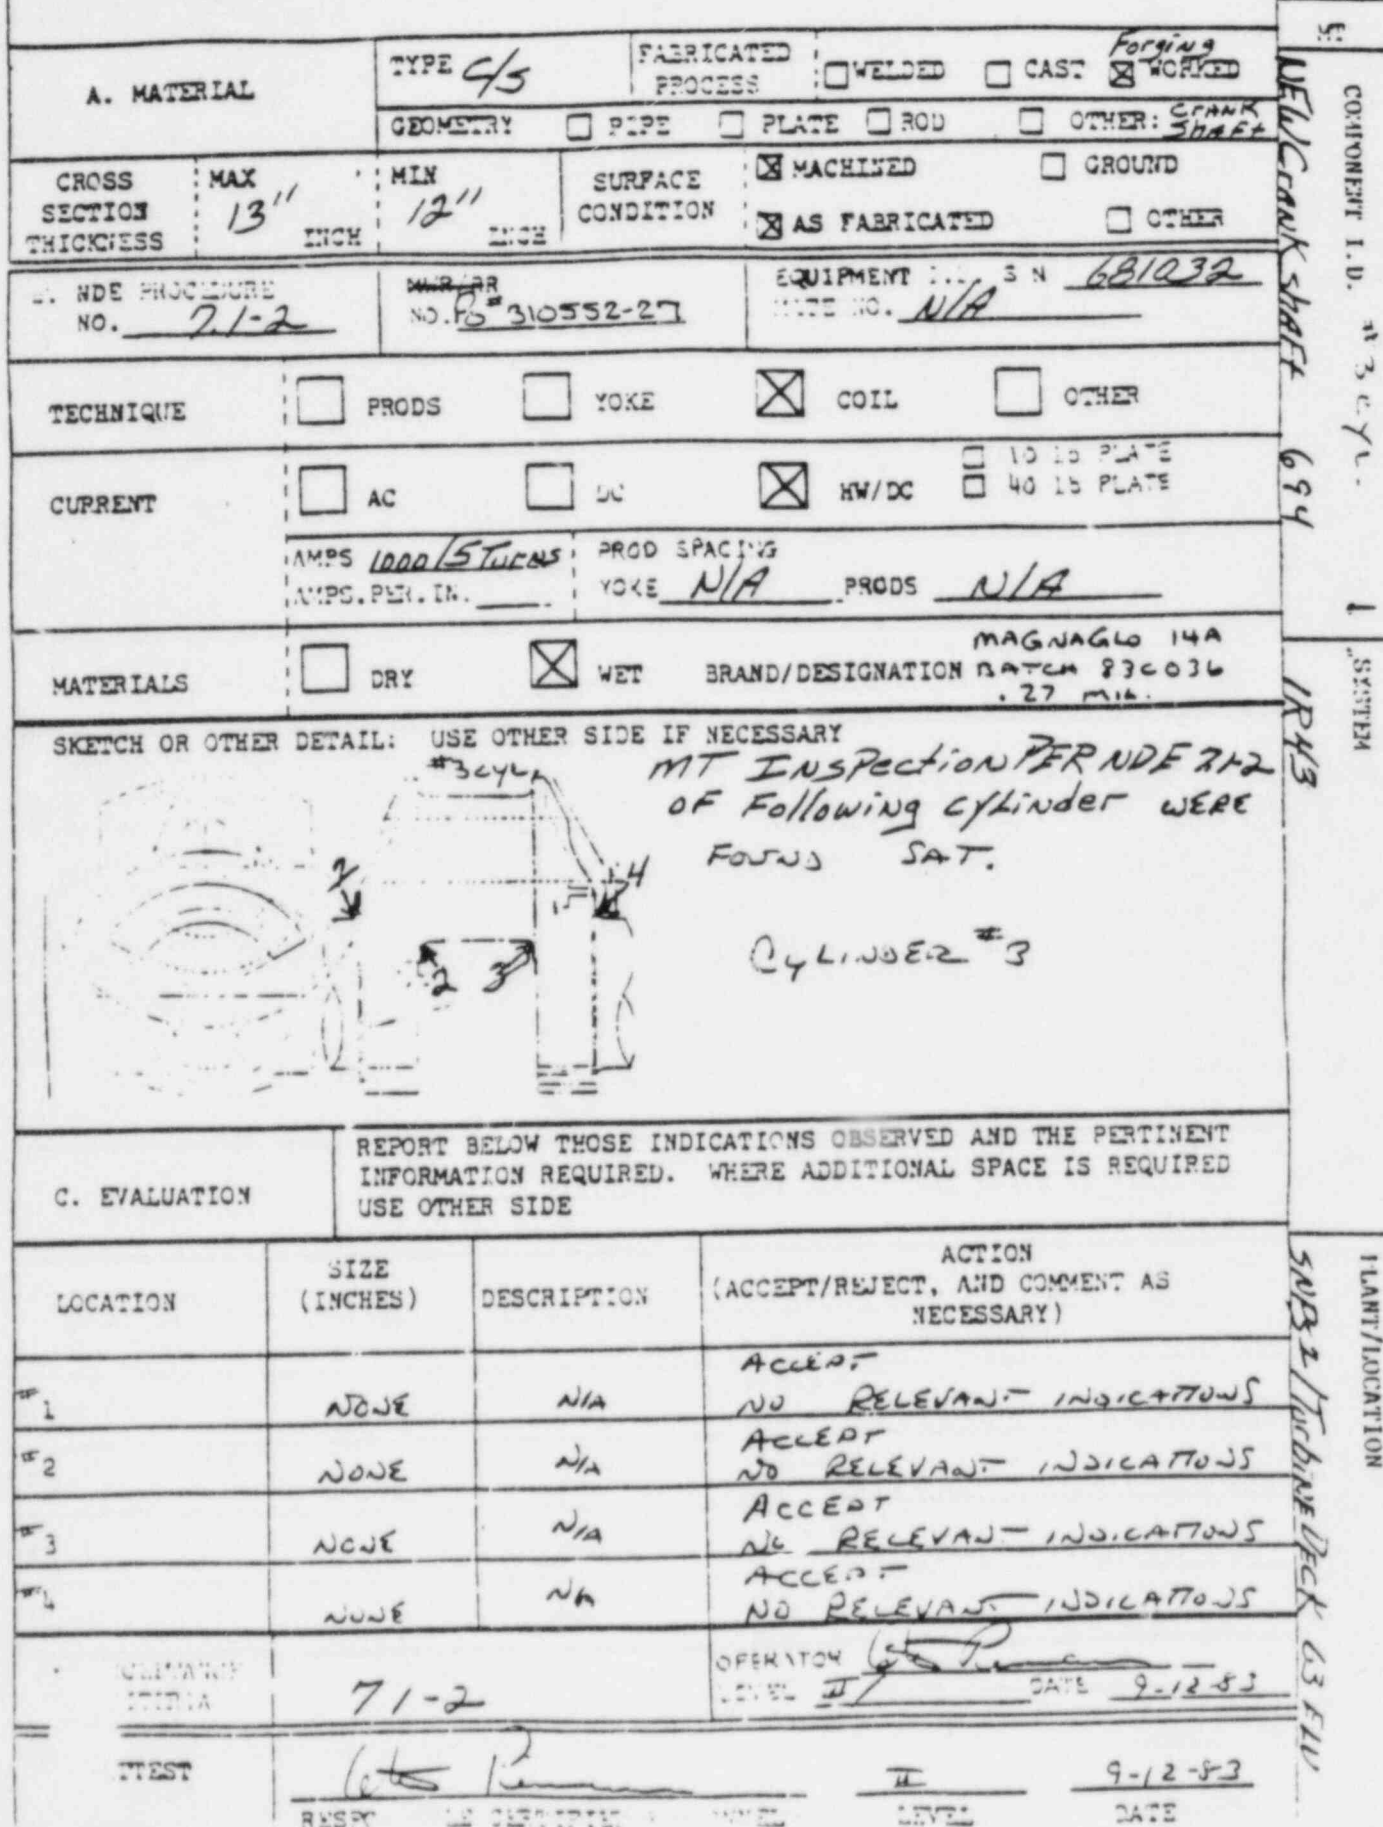 A. MATERIAL
TYPE C/S
FABRICATED PROCESS
WELDED
CAST
Forging
WORKED
GEOMETRY
PIPE
PLATE
ROD
OTHER: CRANK Shaft
CROSS SECTION THICKNESS
MAX 13" INCH
MIN 12" INCH
SURFACE CONDITION
MACHINED
GROUND
AS FABRICATED
OTHER
NDE PROCEDURE
NO. 7.1-2
MWR/RR
NO. PO# 310552-27
EQUIPMENT S N 681032
NO. N/A
TECHNIQUE
PRODS
YOKE
COIL
OTHER
CURRENT
AC
DC
HW/DC
10 LB PLATE
40 LB PLATE
AMPS 1000/5 Turns
AMPS. PER. IN.
PROD SPACING
YOKE N/A PRODS N/A
MATERIALS
DRY
WET
BRAND/DESIGNATION
MAGNAGLO 14A
BATCH 83C036
.27 MIL.
SKETCH OR OTHER DETAIL: USE OTHER SIDE IF NECESSARY
#3 CYL
MT INSPection PER NDE 7.1-2
OF Following cylinder WERE
FOUND SAT.
CYLINDER #3
2
4
2 3
C. EVALUATION
REPORT BELOW THOSE INDICATIONS OBSERVED AND THE PERTINENT
INFORMATION REQUIRED. WHERE ADDITIONAL SPACE IS REQUIRED
USE OTHER SIDE
LOCATION
SIZE
(INCHES)
DESCRIPTION
ACTION
(ACCEPT/REJECT, AND COMMENT AS
NECESSARY)
#1 NONE N/A ACCEPT
NO RELEVANT INDICATIONS
#2 NONE N/A ACCEPT
NO RELEVANT INDICATIONS
#3 NONE N/A ACCEPT
NO RELEVANT INDICATIONS
#4 NONE NA ACCEPT
NO RELEVANT INDICATIONS
71-2
OPERATOR
LEVEL II DATE 9-12-83
II 9-12-83
LEVEL DATE
MT
COMPONENT I.D. #3 cyl.
NEW Crankshaft 694
SYSTEM
1R43
PLANT/LOCATION
SNPS 1/Turbine Deck 63 ELV